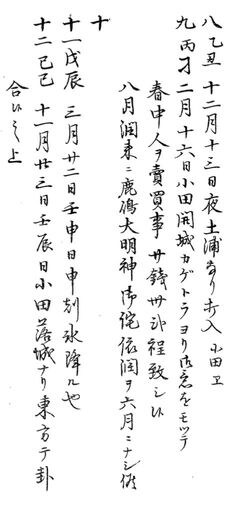 八乙丑 十二月十三日夜土浦より打入 小田エ
九 丙刁 二月十六日小田開城カゲトラヨリ御意ヲモツテ
春中人ヲ賣買事廿銭卅弐程致シ候
八月潤来ニ鹿嶋大明神御侘依潤ヲ六月ニナシ候
十
十一戊辰 三月廿二日壬申日申剋氷降ル也
十二己巳 十一月廿三日壬辰日小田落城ナリ東方テ卦
合候之上